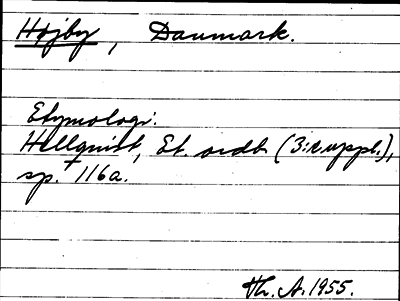 Højby, Danmark.
Etymologi.
Hellquist, Et. ordb. (3:e uppl.),
sp. 116a.
Th. A. 1955.